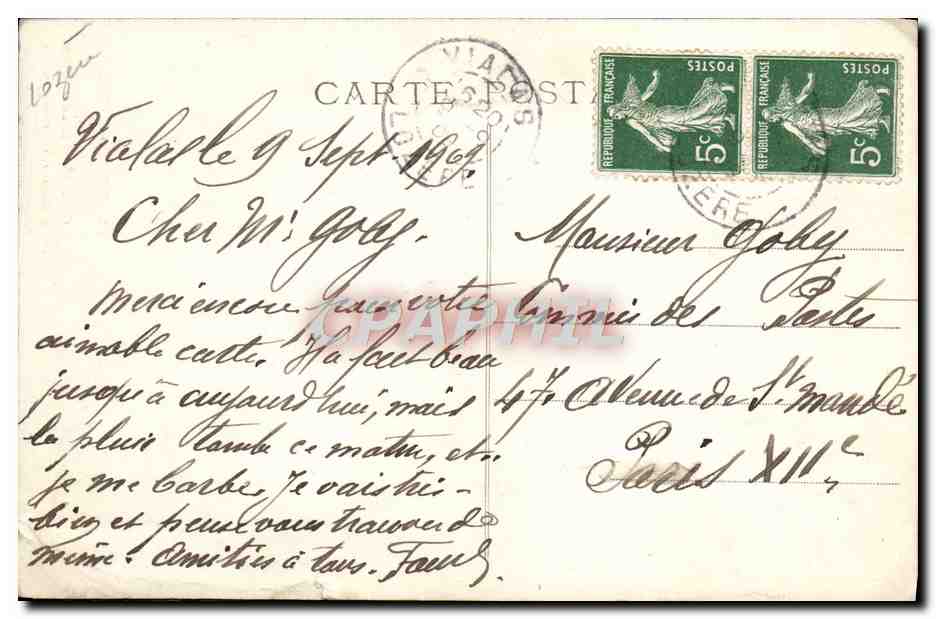 Lozère
CARTE POSTA
VIALAS
LOZERE
REPUBLIQUE FRANÇAISE
POSTES
5c
REPUBLIQUE FRANÇAISE
POSTES
5c
ZERE
Vialas le 9 Sept 1909.
Cher Mr. Goby.
Merci encore pour votre
aimable carte. Il a fait beau
jusqu'à aujourd'hui, mais
la pluie tombe ce matin, et
je me barbe. Je vais très-
bien et pense vous trouver de
même. Amitiés à tous.
Monsieur Goby
Commis des Postes
47. Avenue de St Mandé
Paris XIIe
CPAPHIL